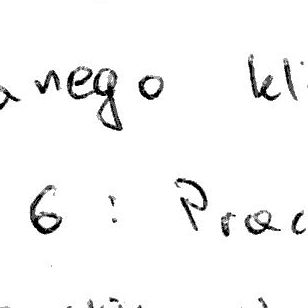 anego kli
6 : Prac